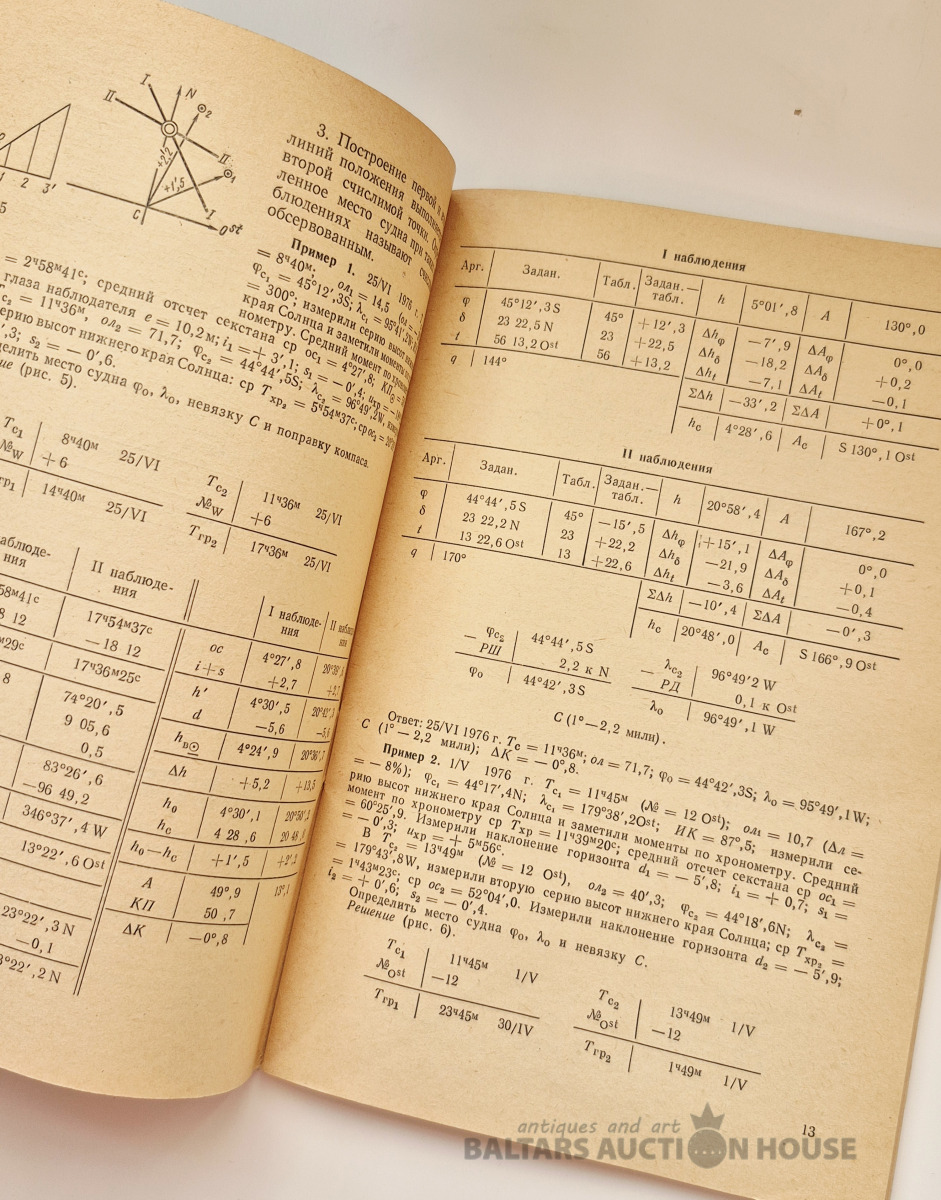 I
II
N
⊙2
II
⊙1
+2',2
+1',5
I
C
Ost
1 2 3'
3. Построение первой и
линий положения выполня
второй счислимой точки.
ленное место судна при так
блюдениях называют счис
обсервованным.
Пример 1. 25/VI 1976 г.
= 8ч40м; ол1 = 14,5
φс1 = 45°12',3S; λс1 = 95°41',2W
= 300°; измерили серию высот ниж
края Солнца и заметили моменты
нометру. Средний момент по хроно
= 2ч58м41с; средний отсчет секстана ср ос1 = 4°27',8;
глаза наблюдателя e = 10,2м; i1 = + 3',1; s1 = — 0',4; uхр = —18м
с2 = 11ч36м, ол2 = 71,7; φс2 = 44°44',5S; λс2 = 96°49',2W,
серию высот нижнего края Солнца: ср Tхр2 = 5ч54м37с; ср ос2 = 20°
',3; s2 = — 0',6.
делить место судна φ0, λ0, невязку C и поправку компаса.
ние (рис. 5).
Tс1 8ч40м 25/VI
№W +6
гр1 14ч40м 25/VI
Tс2 11ч36м 25/VI
№W +6
Tгр2 17ч36м 25/VI
наблюде-
ния
II наблюде-
ния
58м41с 17ч54м37с
8 12 —18 12
м29с 17ч36м25с
8 74°20',5
9 05,6
0,5
83°26',6
—96 49,2
346°37',4 W
13°22',6 Ost
23°22',3 N
—0,1
3°22',2 N
I наблюде-
ния
II наблю
ния
ос 4°27',8 20°39',
i+s +2,7 +2,
h' 4°30',5 20°42',
d —5,6 —5,
hв⊙ 4°24',9 20°36',
Δh +5,2 +13,5
h0 4°30',1 20°50',
hс 4 28,6 20 48
h0—hс +1',5 +2',2
A 49°,9 13°,1
КП 50,7
ΔK —0°,8
I наблюдения
Арг. Задан. Табл. Задан.— табл. h 5°01',8 A 130°,0
φ 45°12',3S 45° +12',3 Δhφ —7',9 ΔAφ 0°,0
δ 23 22,5 N 23 +22,5 Δhδ —18,2 ΔAδ +0,2
t 56 13,2 Ost 56 +13,2 Δht —7,1 ΔAt —0,1
q 144° ΣΔh —33',2 ΣΔA +0°,1
hс 4°28',6 Aс S 130°,1 Ost
II наблюдения
Арг. Задан. Табл. Задан.— табл. h 20°58',4 A 167°,2
φ 44°44',5 S 45° —15',5 Δhφ +15',1 ΔAφ 0°,0
δ 23 22,2 N 23 +22,2 Δhδ —21,9 ΔAδ +0,1
t 13 22,6 Ost 13 +22,6 Δht —3,6 ΔAt —0,4
q 170° ΣΔh —10',4 ΣΔA —0',3
hс 20°48',0 Aс S 166°,9 Ost
— φс2 44°44',5 S
РШ 2,2 к N
φ0 44°42',3 S
— λс2 96°49'2 W
РД 0,1 к Ost
λ0 96°49',1 W
C (1°—2,2 мили).
Ответ: 25/VI 1976 г. Tс = 11ч36м; ол = 71,7; φ0 = 44°42',3S; λ0 = 95°49',1W;
C (1° — 2,2 мили); ΔK = — 0°,8.
Пример 2. 1/V 1976 г. Tс1 = 11ч45м (№ = 12 Ost), ол1 = 10,7 (Δл =
= — 8%); φс1 = 44°17',4N; λс1 = 179°38',2Ost; ИК = 87°,5; измерили се-
рию высот нижнего края Солнца и заметили моменты по хронометру. Средний
момент по хронометру ср Tхр = 11ч39м20с; средний отсчет секстана ср ос1 =
= 60°25',9. Измерили наклонение горизонта d1 = — 5',8; i1 = + 0,7; s1 =
= — 0',3; uхр = + 5м56с.
В Tс2 = 13ч49м (№ = 12 Ost), ол2 = 40',3; φс2 = 44°18',6N; λс2 =
= 179°43',8W, измерили вторую серию высот нижнего края Солнца; ср Tхр2 =
= 1ч43м23с; ср ос2 = 52°04',0. Измерили наклонение горизонта d2 = — 5',9;
i2 = + 0',6; s2 = — 0',4.
Определить место судна φ0, λ0 и невязку C.
Решение (рис. 6).
Tс1 11ч45м 1/V
№Ost —12
Tгр1 23ч45м 30/IV
Tс2 13ч49м 1/V
№Ost —12
Tгр2 1ч49м 1/V
13
antiques and art
BALTARS AUCTION HOUSE